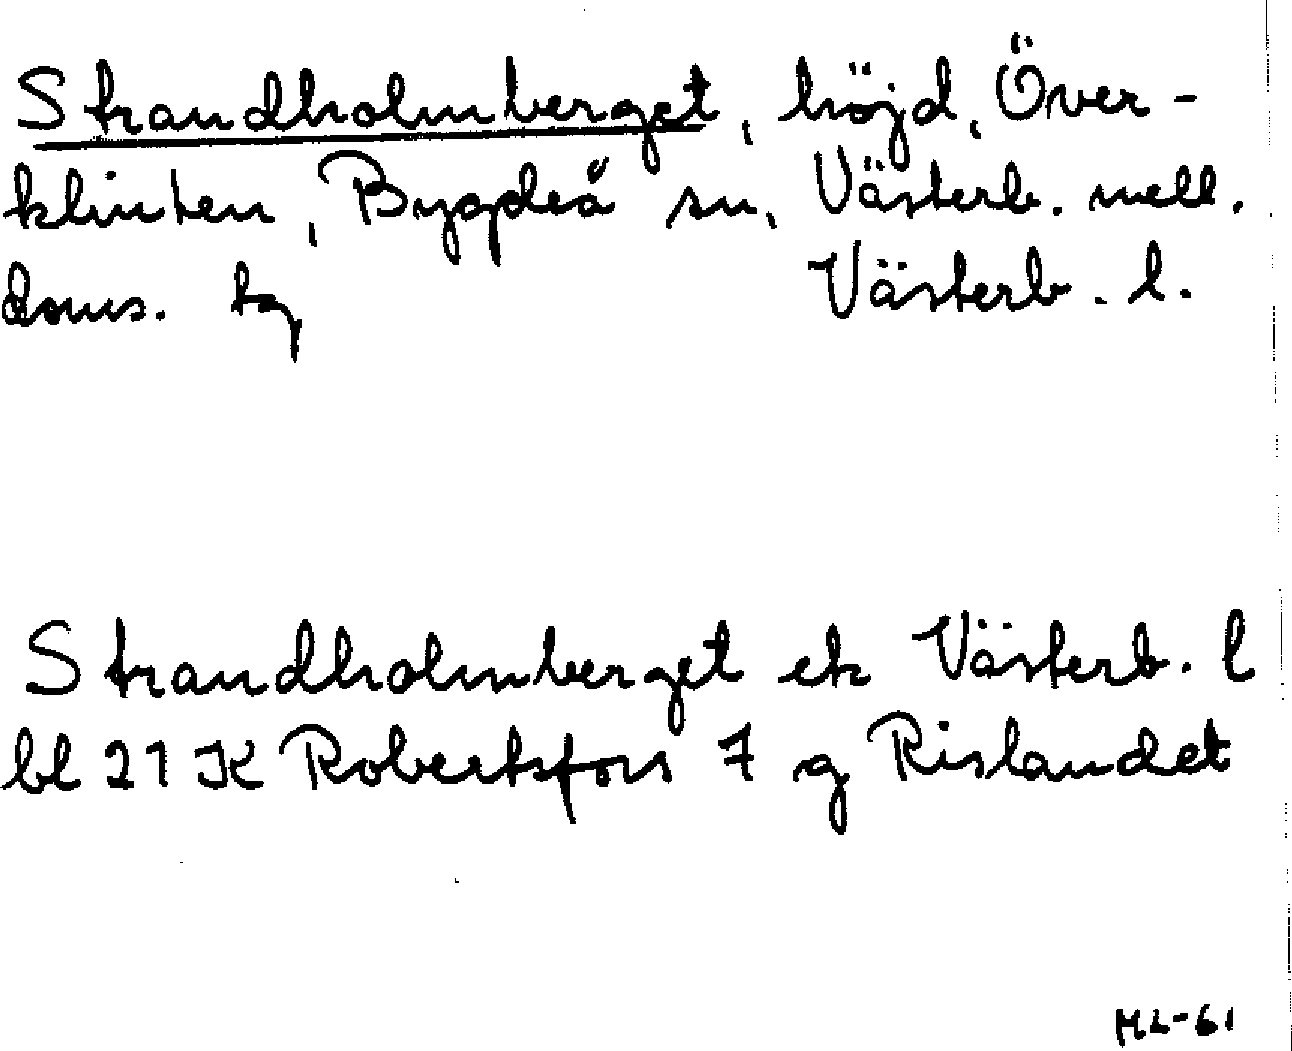 Strandholmberget, höjd, Över-
klinten, Bygdeå sn, Västerb. mell.
doms. tg Västerb. l.
Strandholmberget ek Västerb. l
bl 21 K Robertsfors 7 g Rislandet
ML-61